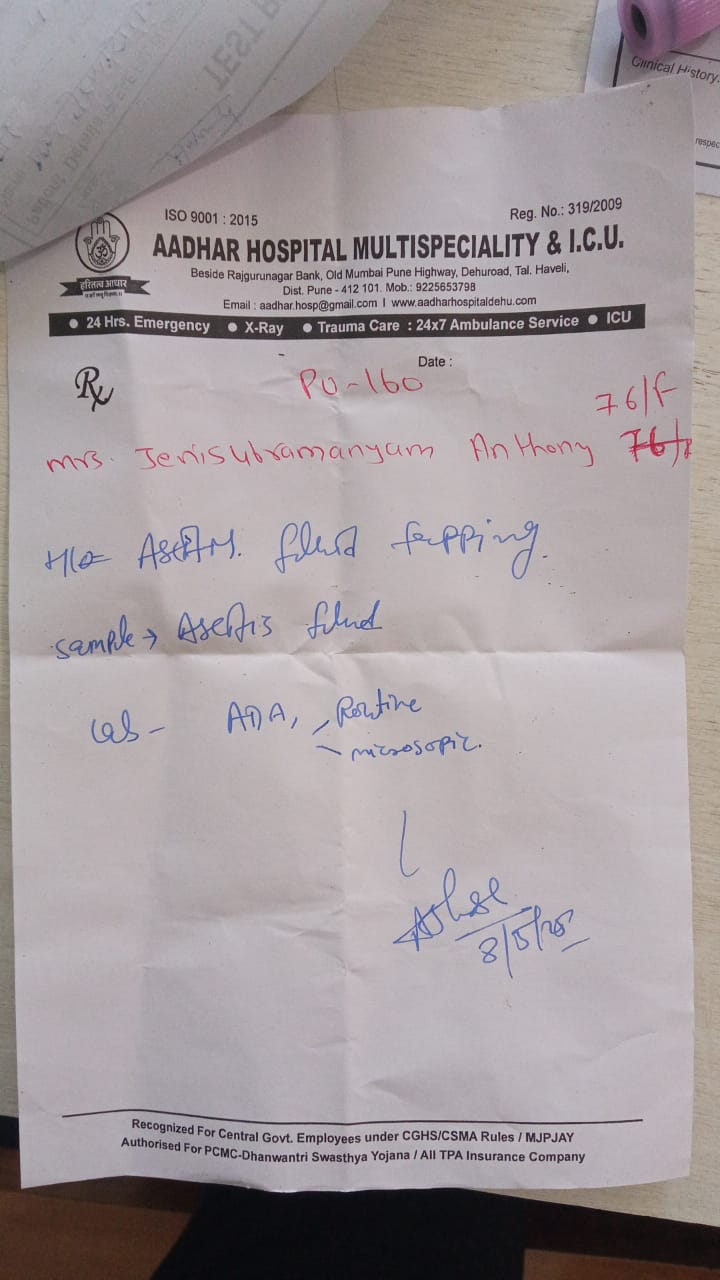 Clinical History.
respec
TEST
ISO 9001 : 2015
Reg. No.: 319/2009
हरितत्व आधार
AADHAR HOSPITAL MULTISPECIALITY & I.C.U.
Beside Rajgurunagar Bank, Old Mumbai Pune Highway, Dehuroad, Tal. Haveli,
Dist. Pune - 412 101. Mob.: 9225653798
Email : aadhar.hosp@gmail.com I www.aadharhospitaldehu.com
• 24 Hrs. Emergency • X-Ray • Trauma Care : 24x7 Ambulance Service • ICU
Date :
Rx
PU-160
76/F
Mrs. Jenisubramanyam Anthony
fluid tapping.
sample → fluid
Lab - ADA, - Routine
- microsopic.
8/5/25
Recognized For Central Govt. Employees under CGHS/CSMA Rules / MJPJAY
Authorised For PCMC-Dhanwantri Swasthya Yojana / All TPA Insurance Company